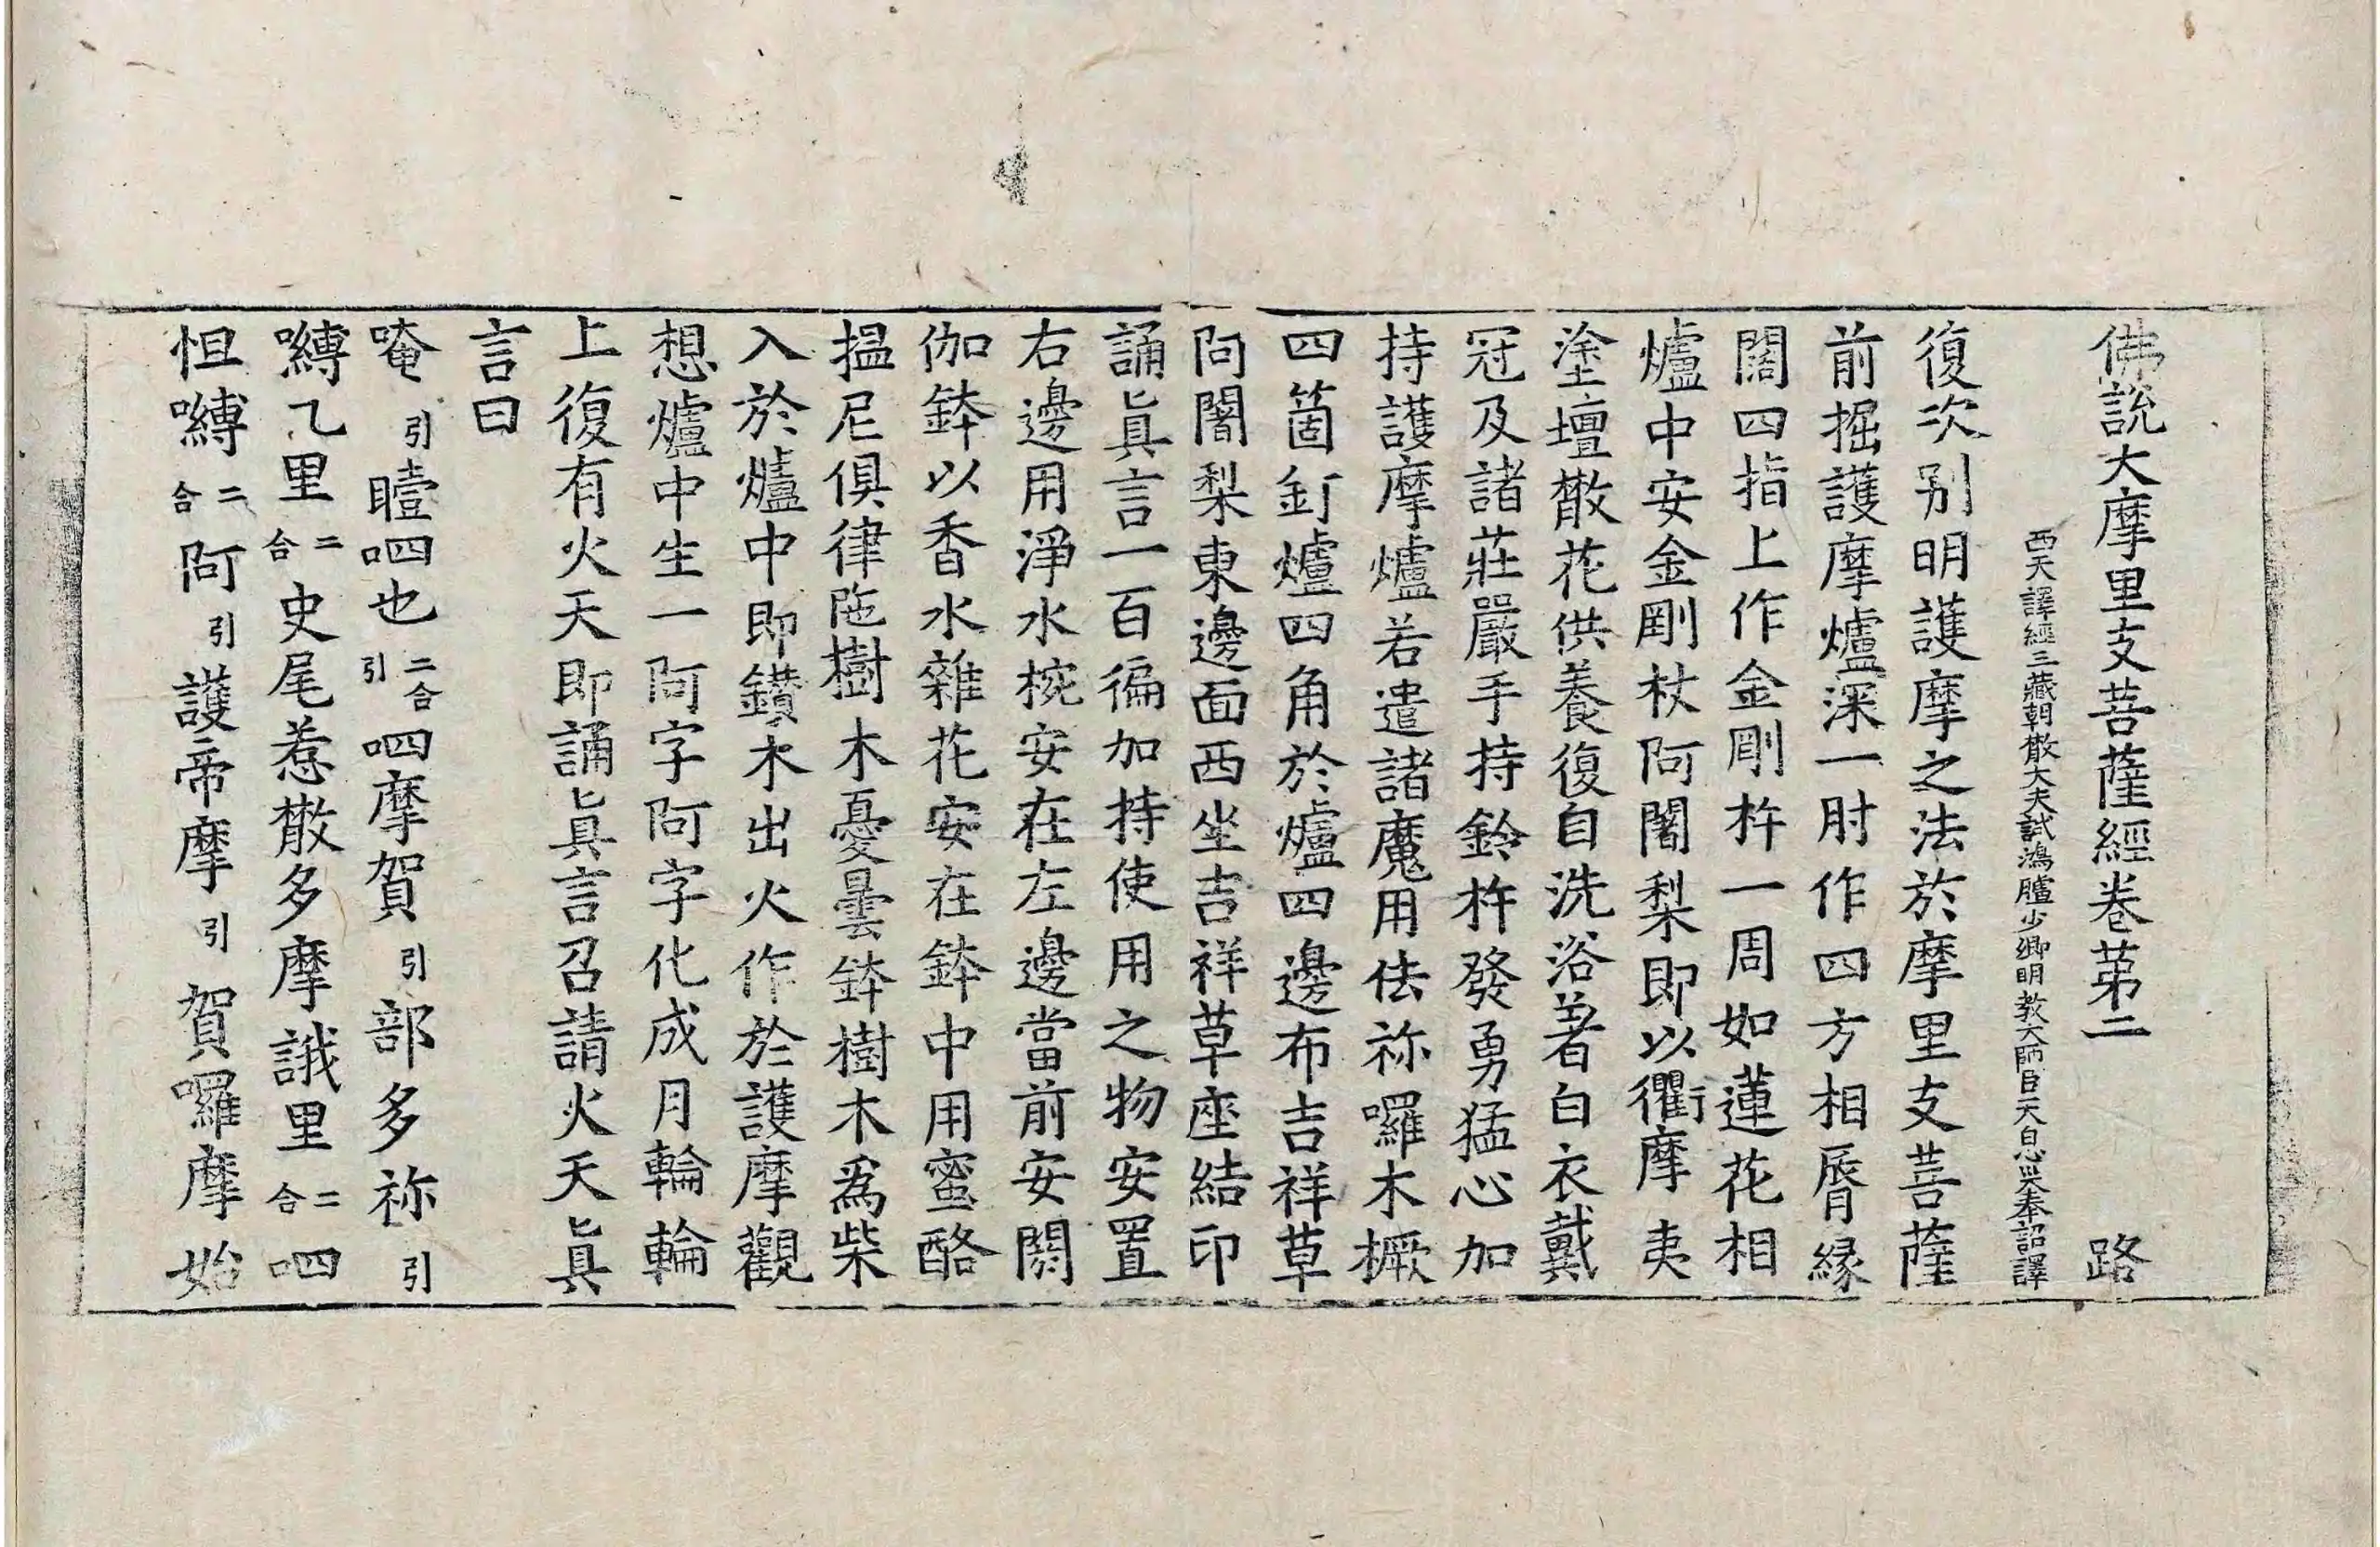 佛說大摩里支菩薩經卷苐二 路
西天譯經三藏朝散大夫試鴻臚少卿明教大師臣天息災奉詔譯
復次别明護摩之法於摩里支菩薩
前掘護摩爐深一肘作四方相脣縁
闊四指上作金剛杵一周如蓮花相
爐中安金剛杖阿闍梨即以衢摩夷
塗壇散花供養復自洗浴著白衣戴
冠及諸莊嚴手持鈴杵發勇猛心加
持護摩爐若遣諸魔用佉祢囉木橛
四箇釘爐四角於爐四邊布吉祥草
阿闍梨東邊面西坐吉祥草座結印
誦眞言一百徧加持使用之物安置
右邊用淨水椀安在左邊當前安閼
伽鉢以香水雜花安在鉢中用蜜酪
揾尼俱律陁樹木憂曇鉢樹木爲柴
入於爐中即鑚木出火作於護摩觀
想爐中生一阿字阿字化成月輪輪
上復有火天即誦眞言召請火天眞
言曰
唵引曀呬也二合引呬摩賀引部多祢引
嚩乙里二合史尾惹散多摩誐里二合呬
怛嚩二合阿引護帝摩引賀囉摩始